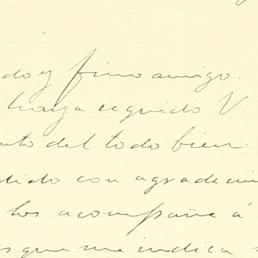 do y fino amigo.
haya seguido V.
nto del todo bien.
dido con agradeci
los acompañe á
s que me indica